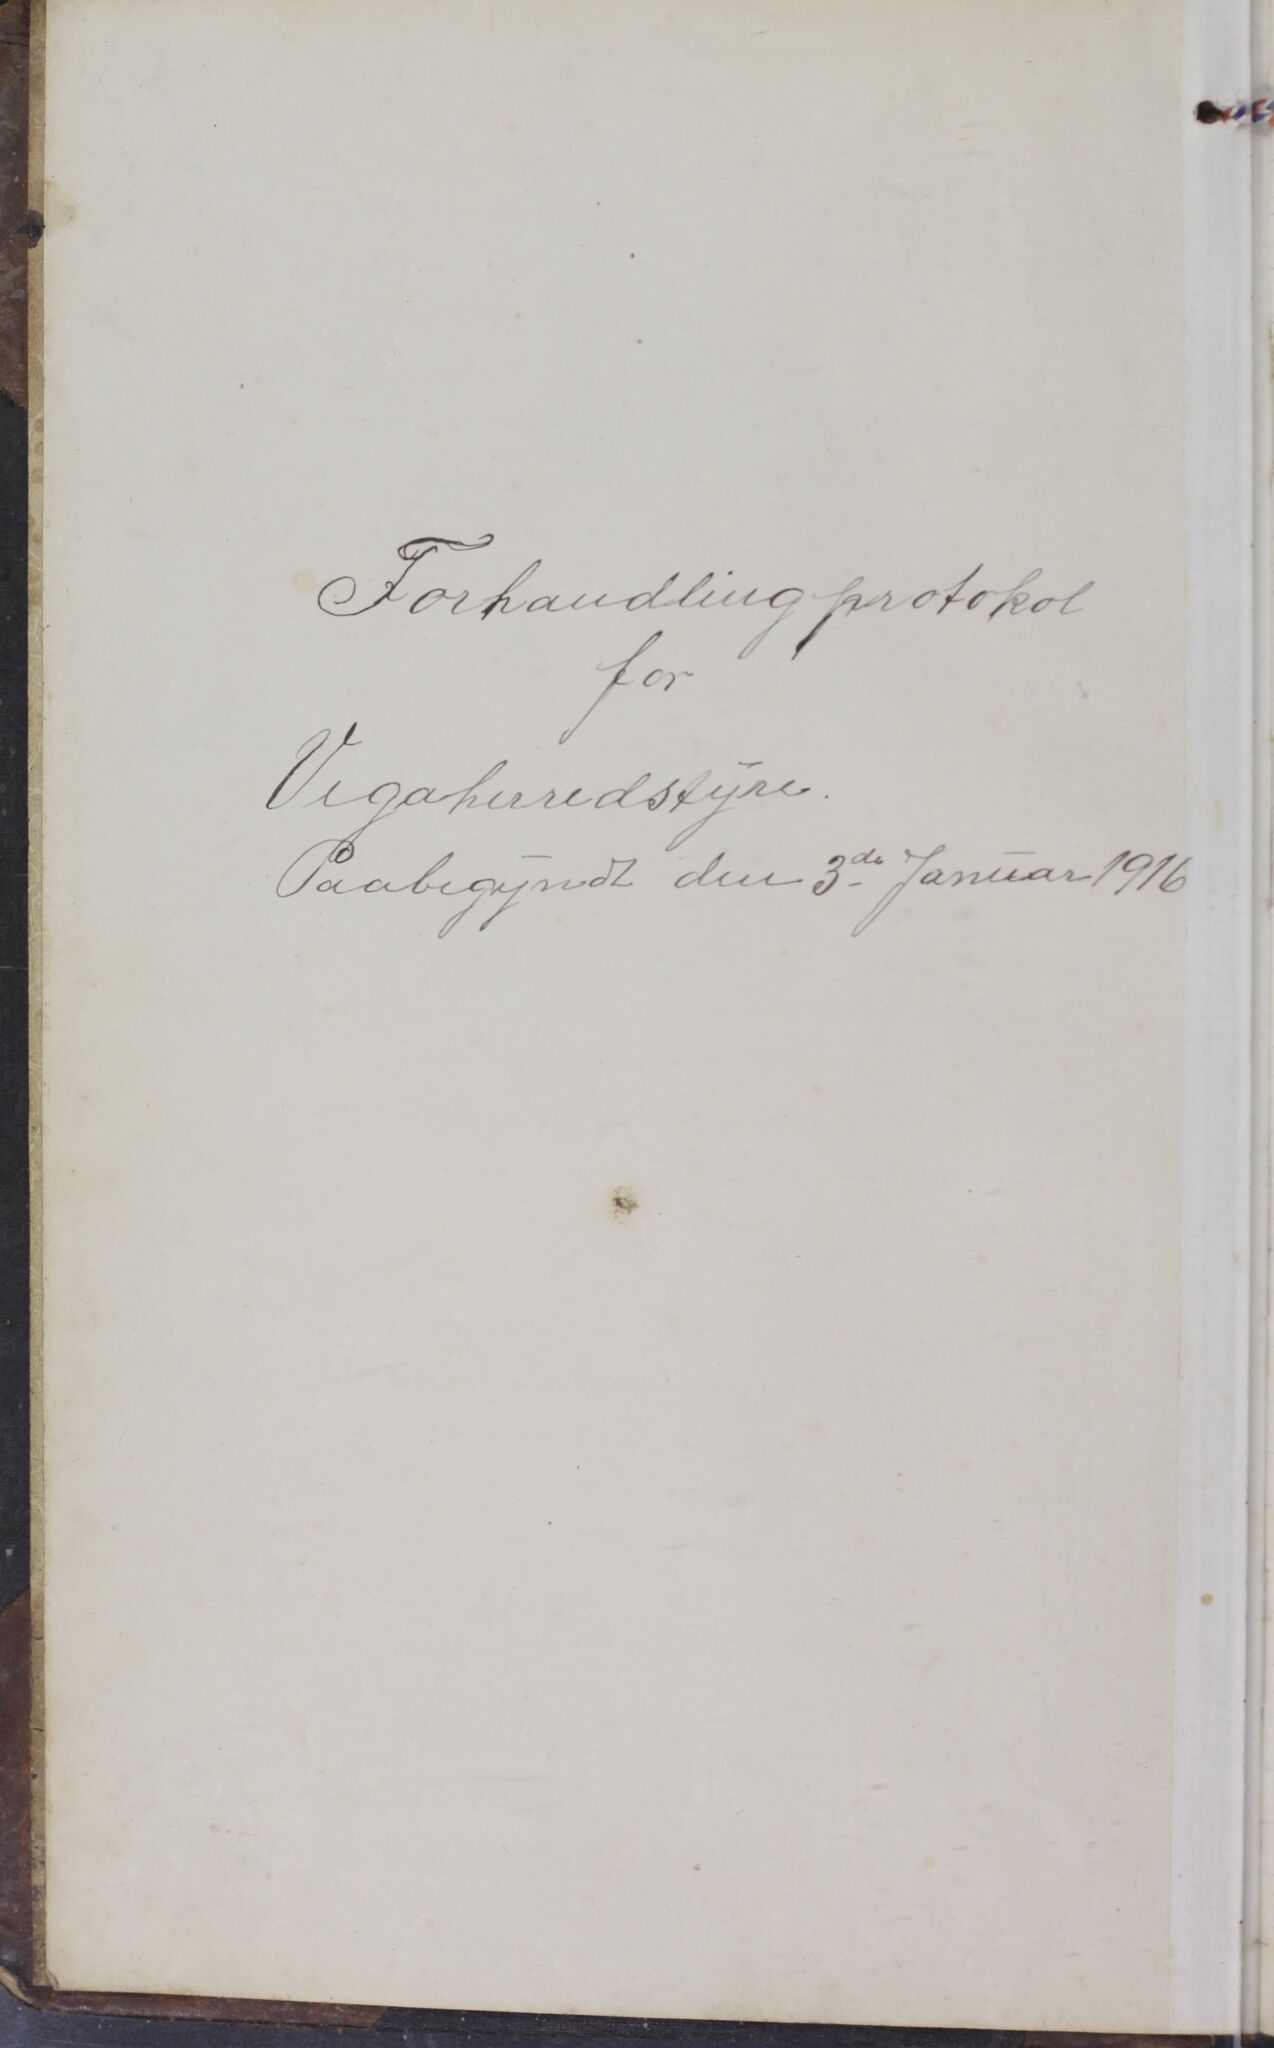 Forhandlingprotokol
for
Vegaherredstyre.
Paabegyndt den 3de Januar 1916